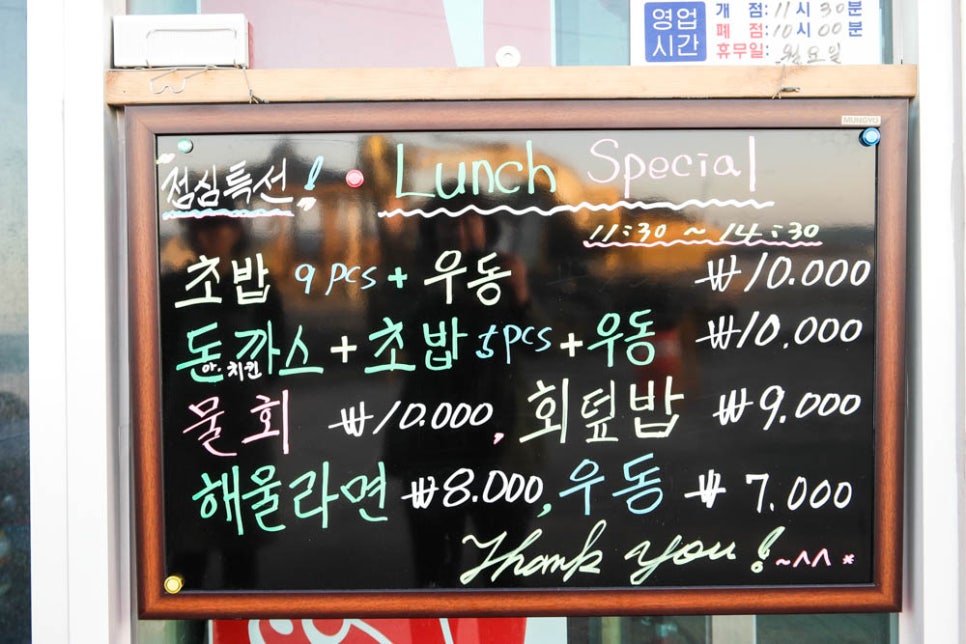 영업 시간
개 점: 11시 30분
폐 점: 10시 00분
휴무일: 월요일
MUNGYO
"점심특선!" Lunch Special
11:30 ~ 14:30
초밥 9 pcs + 우동 ₩10.000
돈까스 + 초밥 5pcs + 우동 ₩10.000
치킨
물회 ₩10.000, 회덮밥 ₩9.000
해울라면 ₩8.000, 우동 ₩7.000
Thank you! ~^^ *